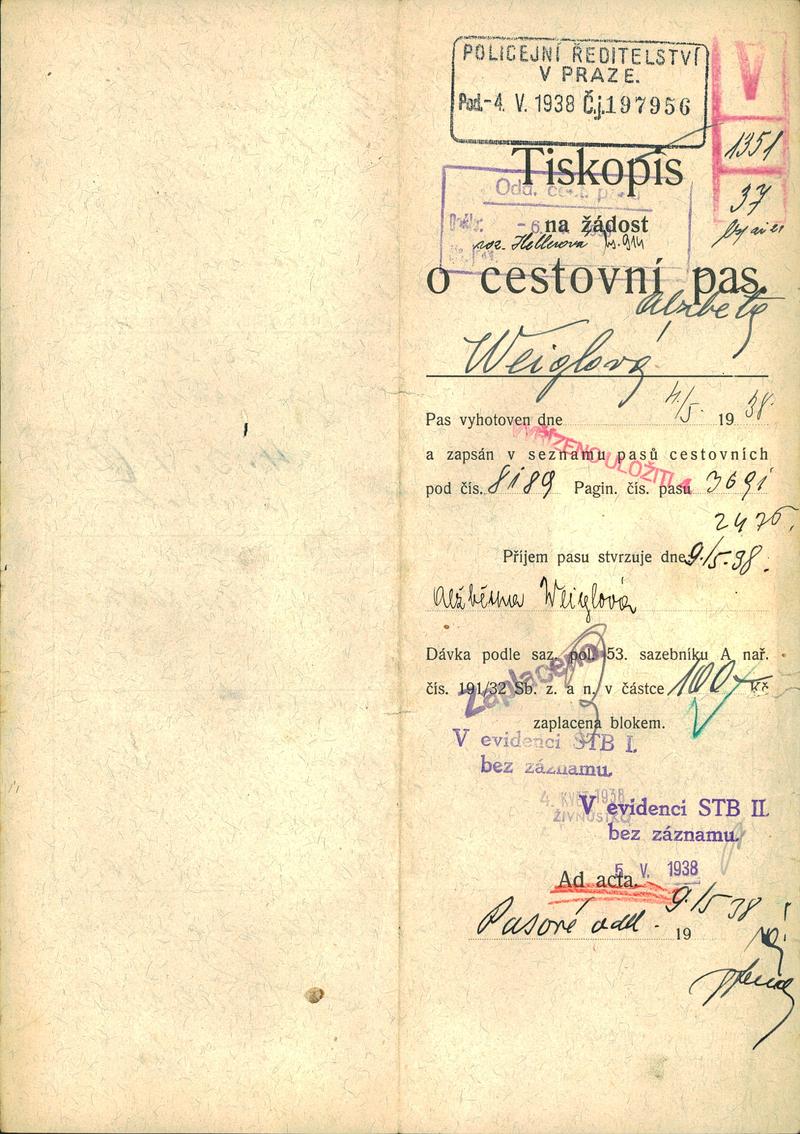 POLICEJNÍ ŘEDITELSTVÍ
V PRAZE.
Pod.-4. V. 1938 Č.j.197956
V
1351
37
Tiskopis
Odd. cest. p
Došlo: - 6.
na žádost
roz. Hellerová
o cestovní pas.
Alžběta
Weiglová
Pas vyhotoven dne 4/5. 1938
VYŘÍZENO ULOŽITI
a zapsán v seznamu pasů cestovních
pod čís. 8189 Pagin. čís. pasu 3691
2475.
Příjem pasu stvrzuje dne 9/5-38.
Alžběta Weiglová
Dávka podle saz. pol. 53. sazebníku A nař.
čís. 191/32 Sb. z. a n. v částce 100 Kč
Zaplaceno
zaplacena blokem.
V evidenci STB I.
bez záznamu.
4. KVĚT 1938
ŽIVNOSTKA
V evidenci STB II.
bez záznamu.
5. V. 1938
Ad acta.
Pasové odd. 9/5 1938